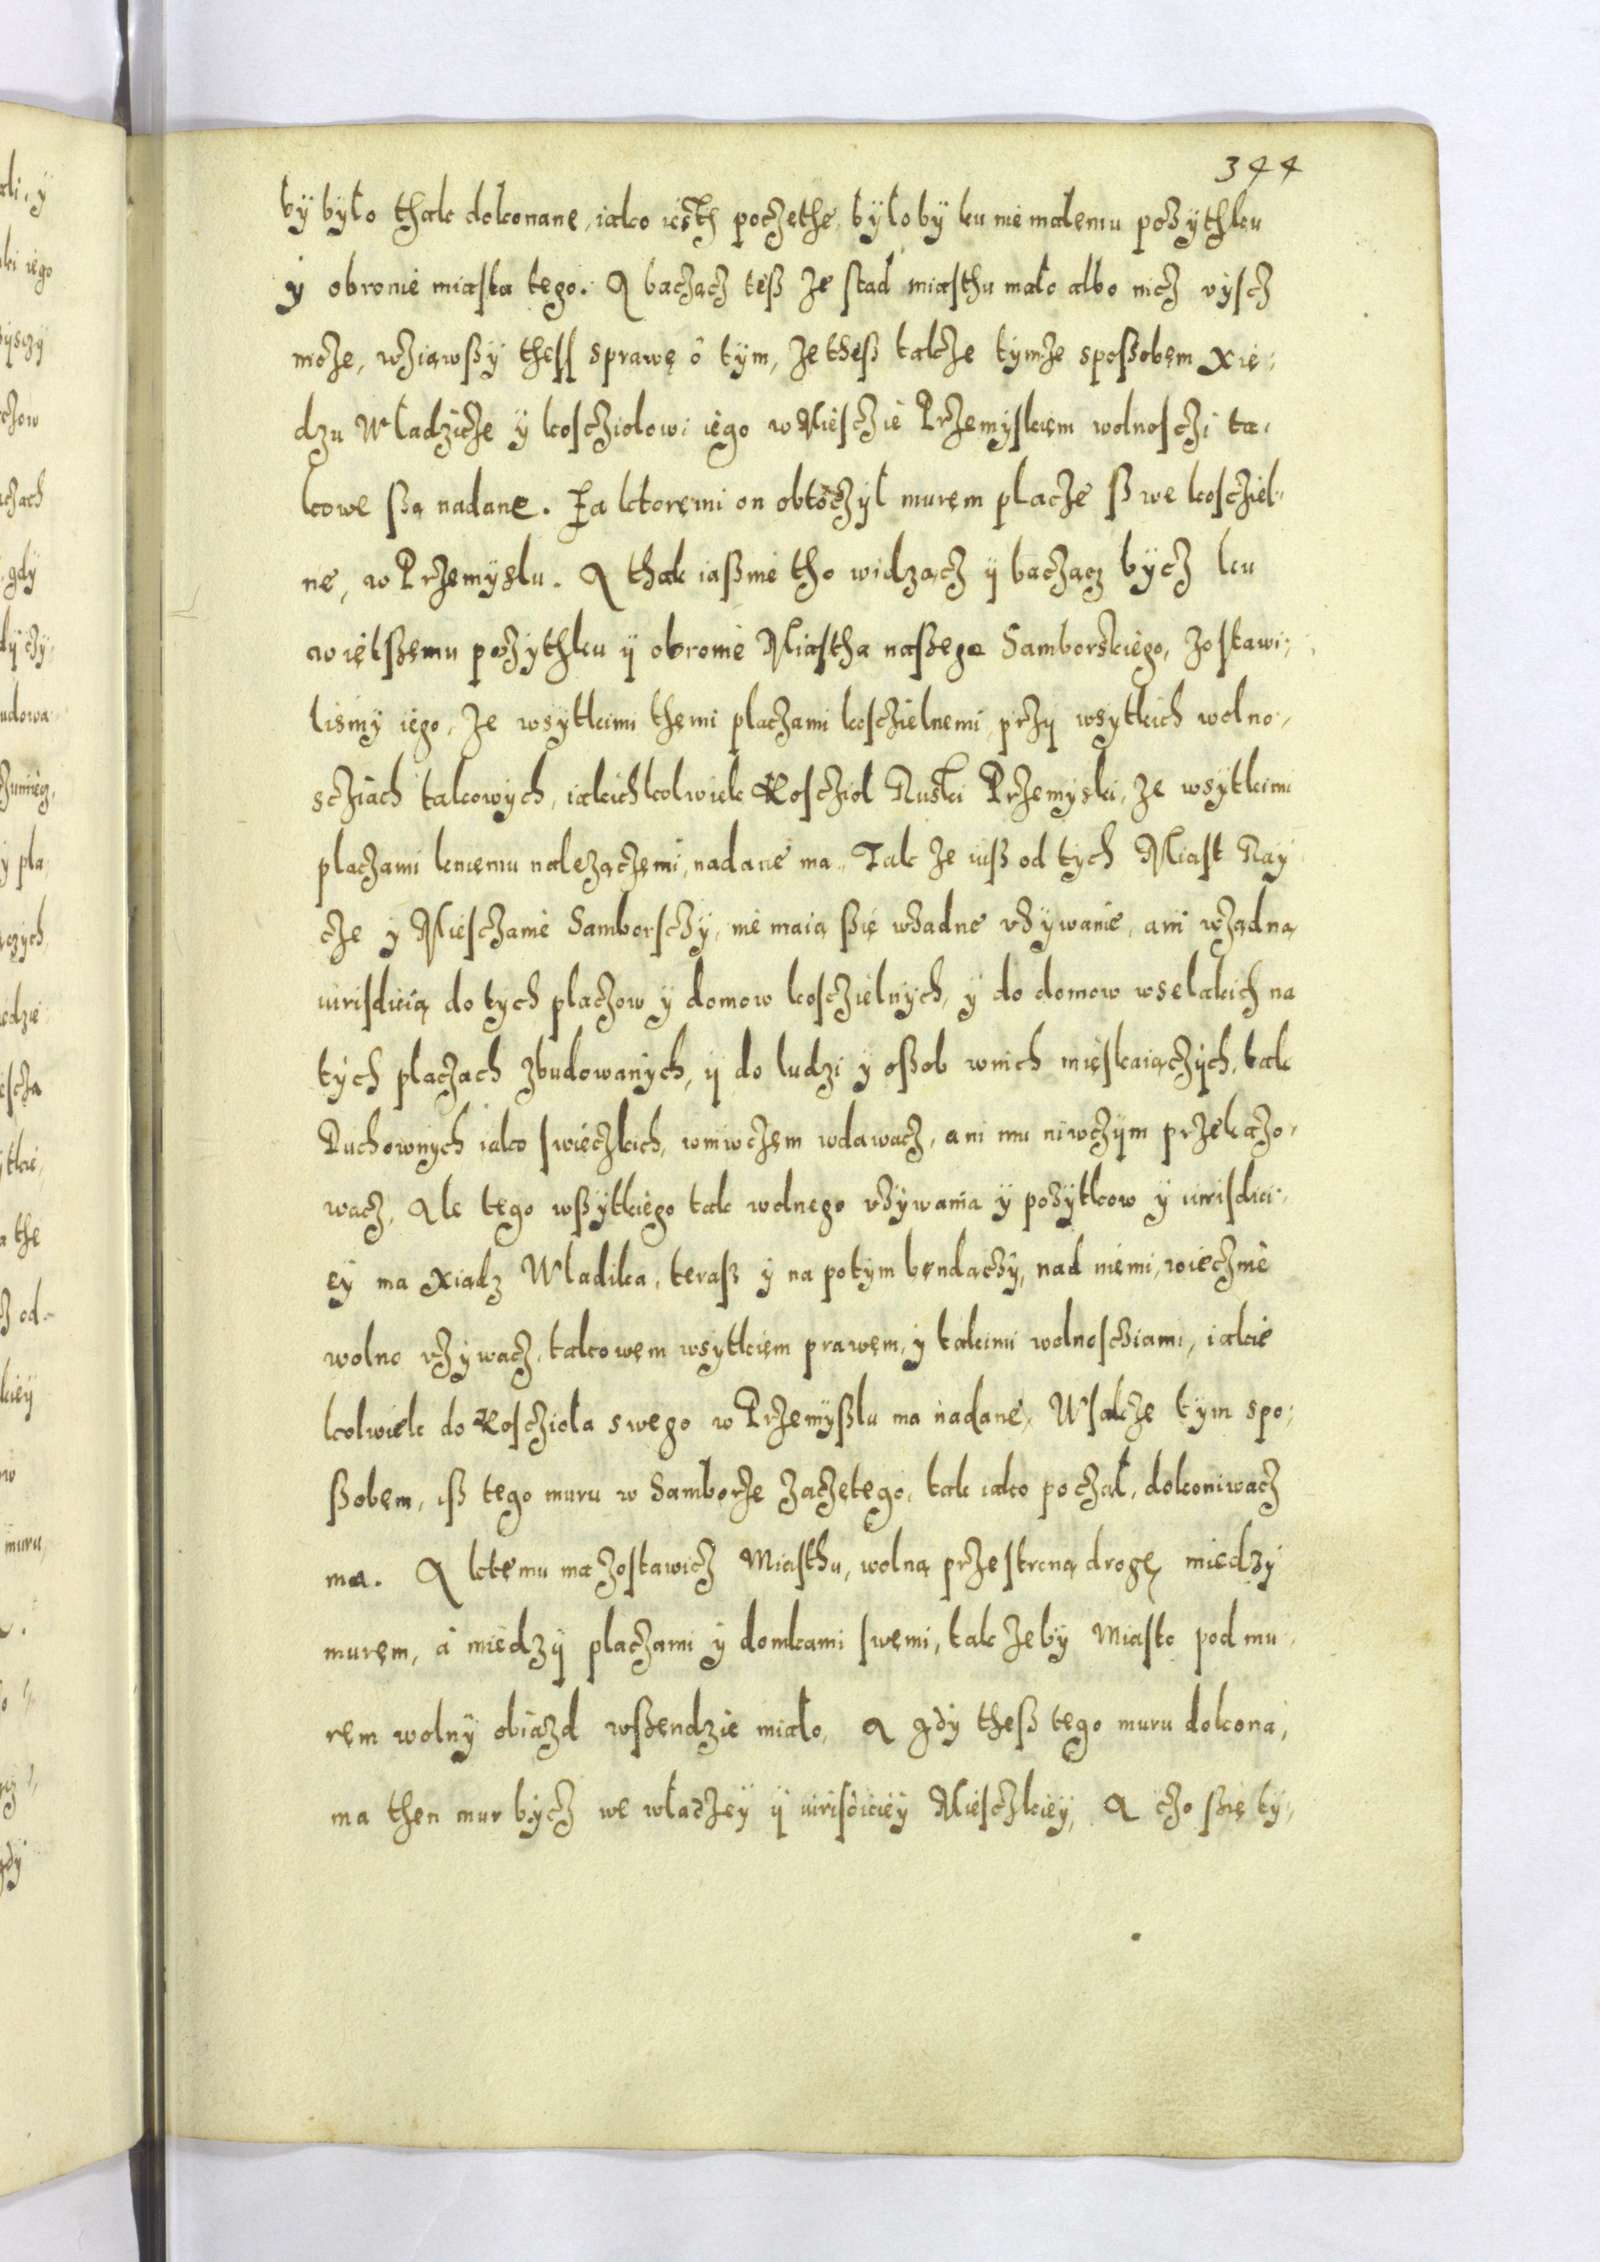 344
by było thak dokonane, iako iesth poczethe, było by ku nie małemu pozythku
y obronie miasta tego. A baczącz teß ze stąd miasthu mało albo nicz vyscz
może, wziąwßy theß sprawę o tym, ze theß takze tymze spoßobem Xię-
dzu Władzicze y kosciołowi iego w Miesczie Przemyskiem wolnosczi ta-
kowe ßą nadane. Za ktoremi on obtoczył murem place ßwe kosciel-
ne, w Przemyslu. A thak iaßmie tho widzącz y baczącz bycz ku
więkßemu pożythku y obronie Miastha naßego Samborskiego, zostawi-
lismy iego, ze wsytkimi themi placzami koscielnemi, przy wsytkich wolno-
scziach takowych, iakichkolwiek Kosczioł Ruski Przemyski, ze wsytkimi
placzami kniemu należączemi, nadane ma. Tak ze iuß od tych Miast Ray
cze y Miesczanie Samborsczy, nie maią ßię wżadne vżywanie, ani wżądną
iurisdicią do tych placzow y domow kosczielnych, y do domow wselakich na
tych placzach zbudowanych, y do ludzi y oßob wnich mięskaiączych, tak
Duchownych iako swieczkich, wniwczem wdawacz, ani mu niwczym przekażo-
wacz, Ale tego wßytkiego tak wolnego vżywania y pożytkow y iurisdici-
ey ma Xiądz Władika, teraß y na potym bendączy, nad niemi, wiecznie
wolno vżywacz, takowem wsytkiem prawem, y takimi wolnosciami, iakie
kolwiek do Koscziola swego w Przemyßlu ma nadane, Wsakze tym spo-
ßobem, iß tego muru w Samborze zaczętego, tak iako poczał, dokoniwacz
ma. A ktemu ma zostawicz Miasthu, wolną przestroną drogę, miedzy
murem, a miedzy placzami y domkami swemi, tak zeby Miasto pod mu-
rem wolny obiazd wßendzie miało, A gdy theß tego muru dokona,
ma then mur bycz we władzey y iurisdiciey Mieiskiey, A czo ßię ty-